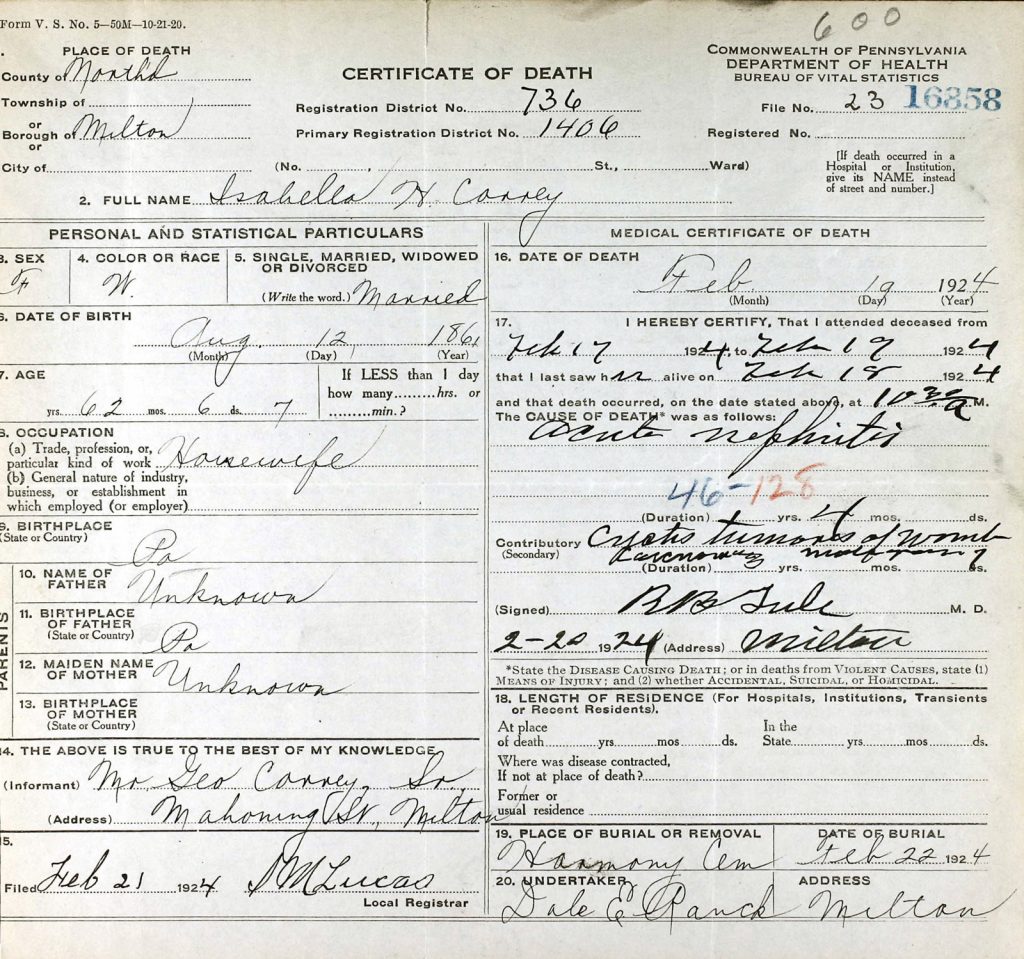 Form V. S. No. 5—50M—10-21-20.
600
1. PLACE OF DEATH
County of Northd
Township of
or
Borough of Milton
or
City of
CERTIFICATE OF DEATH
Registration District No. 736
Primary Registration District No. 1406
(No. , St., Ward)
COMMONWEALTH OF PENNSYLVANIA
DEPARTMENT OF HEALTH
BUREAU OF VITAL STATISTICS
File No. 23 16858
Registered No.
[If death occurred in a
Hospital or Institution,
give its NAME instead
of street and number.]
2. FULL NAME Isabella H. Correy
PERSONAL AND STATISTICAL PARTICULARS
3. SEX
F
4. COLOR OR RACE
W.
5. SINGLE, MARRIED, WIDOWED
OR DIVORCED
(Write the word.) Married
6. DATE OF BIRTH
Aug. 12 1861
(Month) (Day) (Year)
7. AGE
yrs. 62 mos. 6 ds. 7
If LESS than 1 day
how many hrs. or
min.?
8. OCCUPATION
(a) Trade, profession, or,
particular kind of work Housewife
(b) General nature of industry,
business, or establishment in
which employed (or employer)
9. BIRTHPLACE
(State or Country)
Pa
PARENTS
10. NAME OF
FATHER
Unknown
11. BIRTHPLACE
OF FATHER
(State or Country)
Pa
12. MAIDEN NAME
OF MOTHER
Unknown
13. BIRTHPLACE
OF MOTHER
(State or Country)
14. THE ABOVE IS TRUE TO THE BEST OF MY KNOWLEDGE
(Informant) Mr. Geo Correy, Sr.
(Address) Mahoning St., Milton
15.
Filed Feb 21 1924 Lucas
Local Registrar
MEDICAL CERTIFICATE OF DEATH
16. DATE OF DEATH
Feb 19 1924
(Month) (Day) (Year)
17. I HEREBY CERTIFY, That I attended deceased from
Feb 17 1924, to Feb 19 1924
that I last saw her alive on Feb 18 1924
and that death occurred, on the date stated above, at 10 30 a M.
The CAUSE OF DEATH* was as follows:
Acute nephritis
46-128
(Duration) yrs. 4 mos. ds.
Contributory Cystic tumors of womb
(Secondary)
(Duration) yrs. mos. ds.
(Signed) R B M. D.
2-20 1924 (Address) Milton
*State the DISEASE CAUSING DEATH; or in deaths from VIOLENT CAUSES, state (1)
MEANS OF INJURY; and (2) whether ACCIDENTAL, SUICIDAL, or HOMICIDAL.
18. LENGTH OF RESIDENCE (For Hospitals, Institutions, Transients
or Recent Residents).
At place
of death yrs mos ds.
In the
State yrs. mos ds.
Where was disease contracted,
If not at place of death?
Former or
usual residence
19. PLACE OF BURIAL OR REMOVAL
Harmony Cem
DATE OF BURIAL
Feb 22 1924
20. UNDERTAKER
Dale E Ranck
ADDRESS
Milton